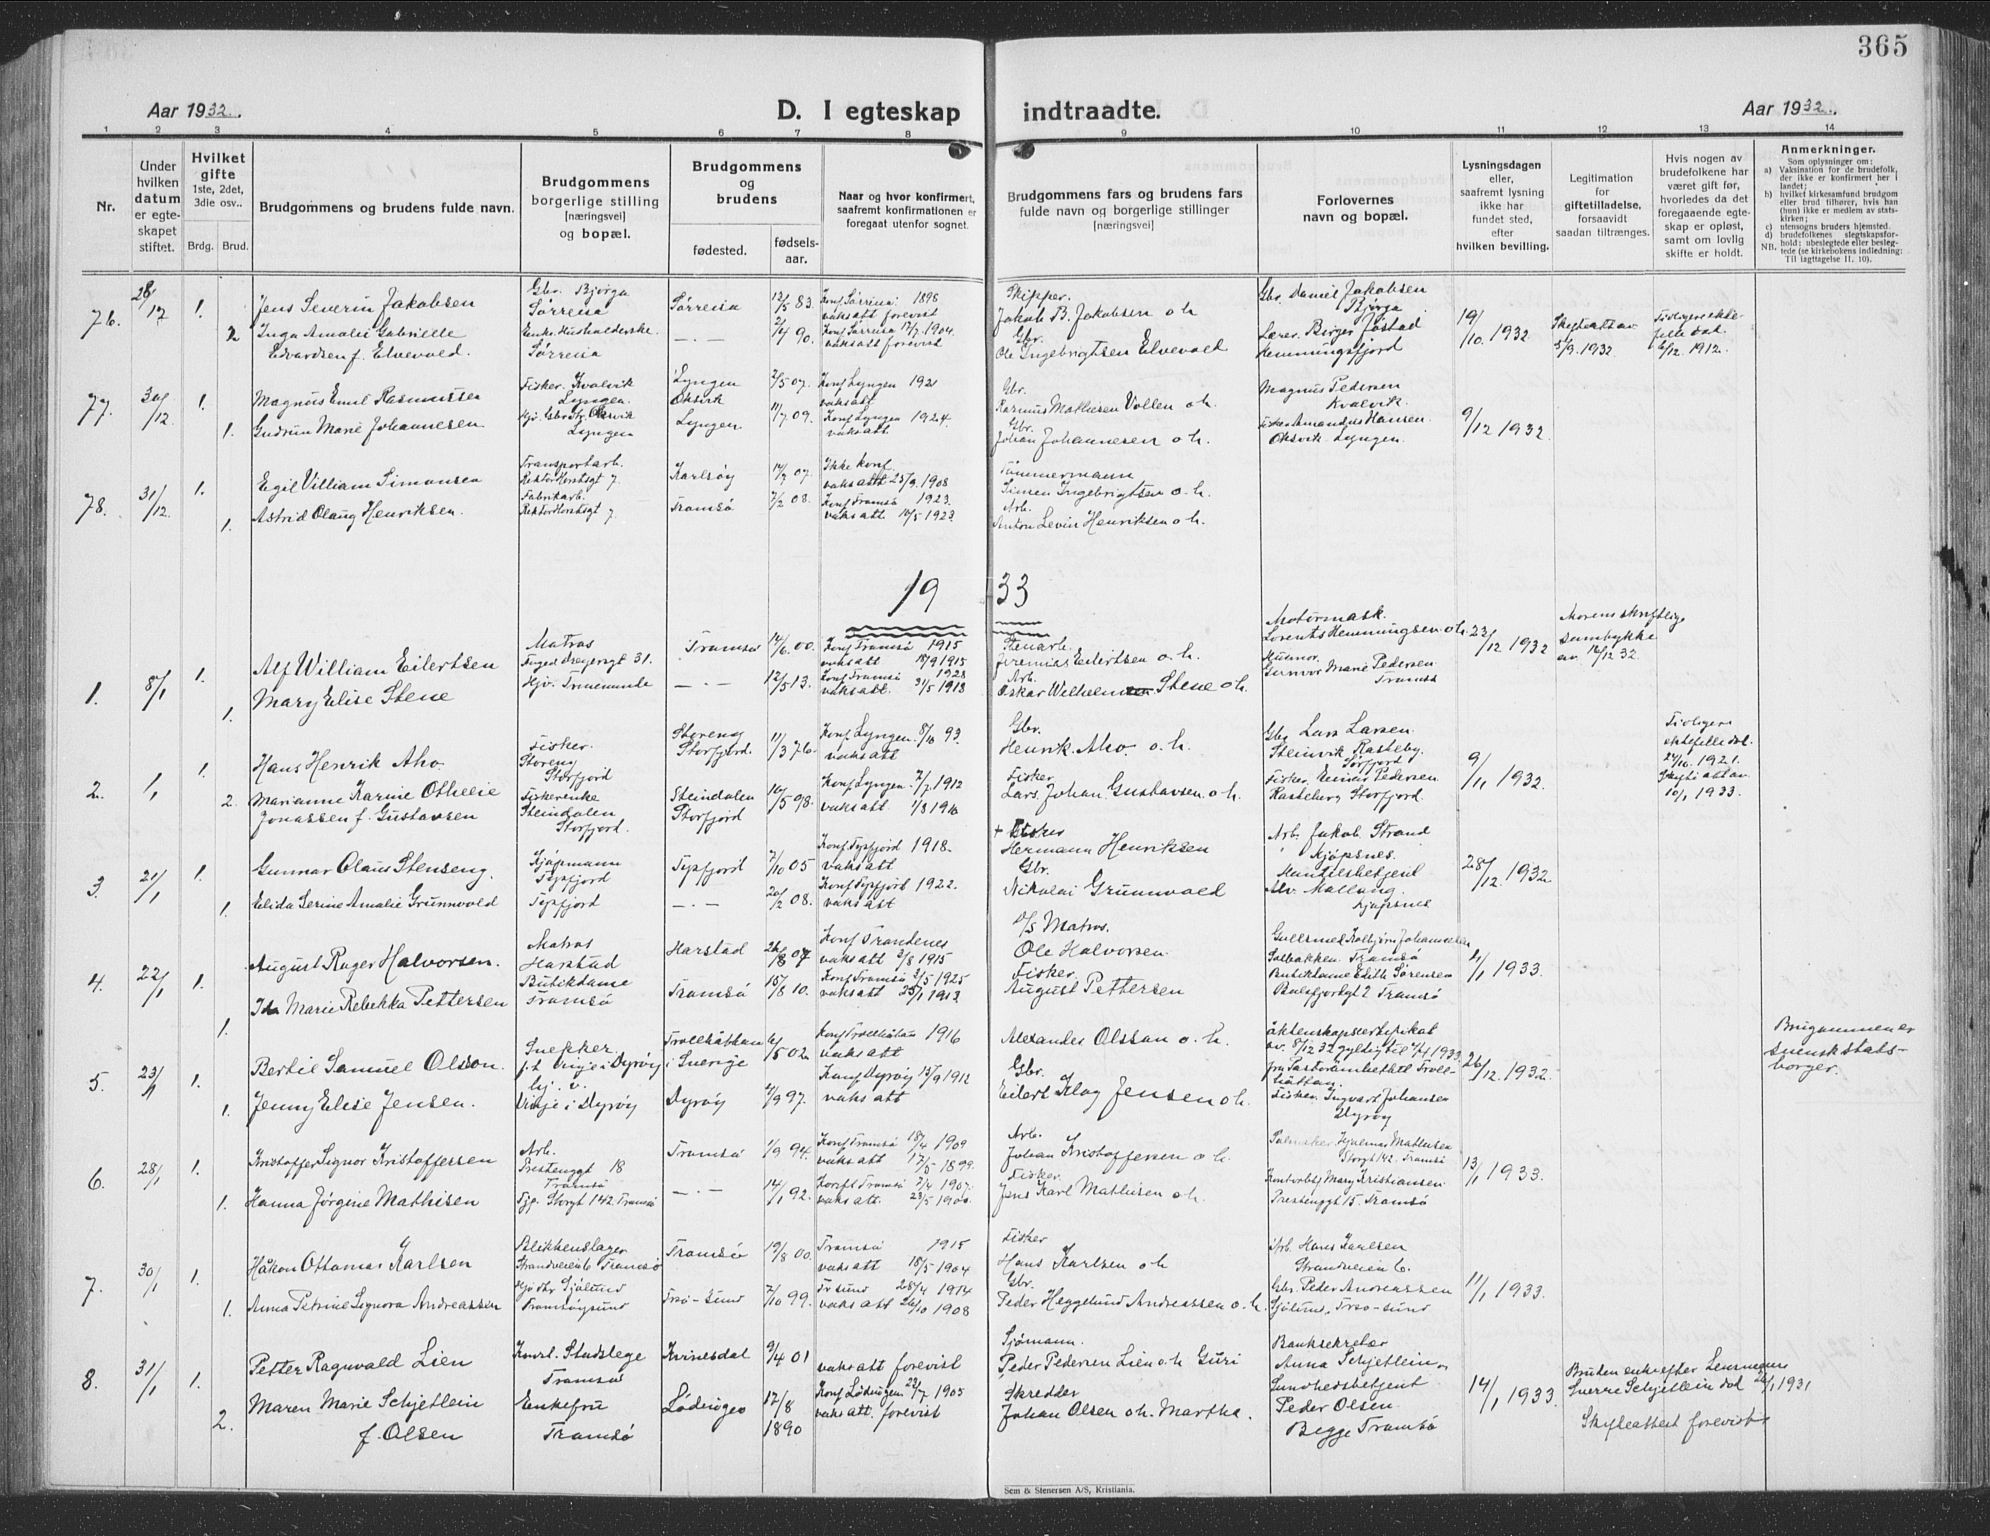 365
Aar 1932.
D. I egteskap indtraadte.
Aar 1932.
1 2 3 4 5 6 7 8 9 10 11 12 13 14
Nr.
Under hvilken datum er egteskapet stiftet.
Hvilket gifte 1ste, 2det, 3die osv..
Brdg. Brud.
Brudgommens og brudens fulde navn.
Brudgommens borgerlige stilling [næringsvei] og bopæl.
Brudgommens og brudens
fødested. fødselsaar.
Naar og hvor konfirmert, saafremt konfirmationen er foregaat utenfor sognet.
Brudgommens fars og brudens fars fulde navn og borgerlige stillinger [næringsvei]
Forlovernes navn og bopæl.
Lysningsdagen eller, saafremt lysning ikke har fundet sted, efter hvilken bevilling.
Legitimation for giftetilladelse, forsaavidt saadan tiltrænges.
Hvis nogen av brudefolkene har været gift før, hvorledes da det foregaaende egteskap er opløst, samt om lovlig skifte er holdt.
Anmerkninger.
Som oplysninger om:
a) Vaksination for de brudefolk, der ikke er konfirmert her i landet;
b) hvilket kirkesamfund brudgom eller brud tilhører, hvis han (hun) ikke er medlem av statskirken;
c) utensogns bruders hjemsted.
d) brudefolkenes slegtskapsforhold: ubeslegtede eller beslegtede (se kirkebokens indledning: Til iagttagelse II, 10).
NB.
76. 28/12 1. Jens Severin Jakobsen Gbr. Bjorga Sørreisa Sørreisa 12/5 83. Konf Sørreisa 1898 vaksatt forevist Skipper. Jakob B. Jakobsen o h Gbr. Daniel Jakobsen Bjorga 19/10 1932 Skifteatt av 5/9. 1932
2 Inga Amalie Gabrielle Edvardsen f. Elvevold. Enke Husholderske Sørreisa — . — 2/4 90. Konf Sørreisa 17/7. 1904. vaksatt forevist Gbr. Ole Ingebrigtsen Elvevold Lærer. Birger Jøstad Hemmingsfjord 6/12. 1912.
77. 30/12 1. Magnus Emil Rasmussen Fisker. Kvalvik Lyngen. Lyngen 2/5 07. Konf Lyngen 1921 vaksatt Gbr. Rasmus Mathisen Vollen o h. Magnus Pedersen Kvalvik. 9/12 1932.
1. Gudrun Marie Johannesen Oksvik Lyngen Lyngen 11/7 09. Konf Lyngen 1924. vaksatt Gbr. Johan Johannesen o h. Fisker Amandus Hansen. Oksvik Lyngen.
78. 31/12. 1. Egil Villiam Simonsen Transportarb. Rektor Horstsgt 7. Karlsøy 07. Ikke konf. vaksatt 25/9. 1908 Tømmermann Simon Ingebrigtsen o. h.
1. Astrid Olaug Henriksen. Fabrikarb. Rektor Horstsgt 7. Tromsø 7/2 08. Konf Tromsø 1923. vaksatt 10/5 1923 Arb. Anton Levin Henriksen o h.
19 33
1. 8/1 1. Alf William Eilertsen Matros 31. Tromsø 14/6. 00. Konf Tromsø 1915 vaksatt 18/9 1915 Stenarb. Jeremias Eilertsen o. h. Motormask. Lorents Hemmingsen o h. 23/12 1932 Morens skriftlige samtykke av 16/12 32.
1. Mary Elise Stene Hjv. — . — 12/5 13. Konf Tromsø 1928 vaksatt. 31/5 1918 Arb. Oskar Wilhelm Stene o h. Gunvor Marie Pedersen Tromsø
2. 1/1 1. Hans Henrik Aho. Fisker. Storeng Storfjord Storeng Storfjord. 11/3 76. Konf Lyngen 8/10 93. vaksatt Gbr. Henrik Aho o. h. Gbr Lars Larsen. Steinvik Rasteby. Sørfjord. 9/11 1932. Tidligere ektefelle død. 24/10. 1921. Skifteatt av 10/1 1933.
2. Marianne Karine Othelie Jonassen f. Gustavsen Fiskerenke Steindalen Storfjord. Steindalen Storfjord 16/5 98. Konf Lyngen 7/7 1912 vaksatt 1/8 1910 Fisker Lars Johan Gustavsen o h. Fisker. Einar Pedersen Rasteberg Storfjord.
3 21/1 1. Gunnar Olaus Stenseng. Kjøpmann Tysfjord Tysfjord 7/10 05 Konf Tysfjord 1918. vaksatt + Fisker Hermann Henriksen Arb. Jakob Strand Kjøpsnes. 28/12. 1932
1. Elida Serine Amalie Grunnvold Tysfjord — . — 20/2 08. Konf Tysfjord 1922. vaksatt Gbr. Nikolai Grunnvold Kjøpsnes
4. 22/1 1. August Roger Halvorsen. Matros Harstad Harstad 26/8 07 Konf Trondenes vaksatt 3/8 1915 D/S Matros. Ole Halvorsen. Gullsmed Kolbjørn Johannessen Solbakken. Tromsø 4/1 1933.
1. Ida Marie Rebekka Pettersen Butikdame Tromsø Tromsø 15/8 10. Konf Tromsø 3/5 1925 vaksatt 25/1 1913. Fisker. August Pettersen Butikdame Edith Sørensen Balsfjordgt 2 Tromsø
5. 23/1 1. Bertil Samuel Olsson. Snekker. f.t. Vinje i Dyrøy Trollhättan i Sverige 5 02. Konf Trollhättan 1916 vaksatt Alexander Olsson o. h. äktenskapscertifikat av. 8/12 32 gyldig til 1933 fra Pastorsembetet Trollhättan. 26/12. 1932. Brugommen er svensk statsborger.
1. Jenny Elise Jensen. Vinje i Dyrøy Dyrøy 4/9 97. Konf Dyrøy 15/9 1912 vaksatt Gbr. Eilert Klog Jensen o h. Fisker. Ingvart Johansen Dyrøy
6. 28/1 1. Kristoffer Signor Kristoffersen Arb. Prestenggt 18 Tromsø Tromsø 1/9 94. Konf Tromsø 18/4 1909 vaksatt 17/5 1899. Arb. Johan Kristoffersen o. h. Hjalmar Mathisen Storgt 142. Tromsø 13/1 1933.
1. Hanna Jørgine Mathisen Tjp. Storgt 142. Tromsø — . — 14/1 92. Konf Tromsø 7/4 1907. vaksatt. 23/5 1900. Fisker. Jens Karl Mathisen o h. Kontorbtj Mary Kristiansen Prestenggt 15. Tromsø
7. 30/1 1. Håkon Ottomar Karlsen Blikkenslager Strandveien 6 Tromsø Tromsø 19/8 00. Tromsø 1915 vaksatt 18/5 1904 Fisker Hans Karlsen o h Arb. Hans Karlsen Strandveien 6. 11/1 1933.
1. Anna Petrine Signora Andreassen Sjølund Tromsøysund Tr.sø-sund 7/10 99. Tr sund 28/4 1914 vaksatt 26/10 1908 Gbr. Peder Heggelund Andreassen o. h. Gbr. Peder Andreassen Sjølund, Tr.sø-sund
8. 31/1 1. Petter Ragnvald Lien Kvinesdal 9/4 01 vaksatt forevist Sjømann. Peder Pedersen Lien o h Guri Banksekretær Anna Schjetlein 14/1 1933. Bruden enke efter Sverre Schjetlein død 26/1 1931
2. Maren Marie Schjetlein f. Olsen Enkefru Tromsø Lødingen 17/8 1890 Konf Lødingen 23/7 1905 vaksatt. forevist Skredder Johan Olsen o h. Martha. Sundhedsbetjent Peder Olsen. Begge Tromsø Skifteattest forevist
Sem & Stenersen A/S, Kristiania.